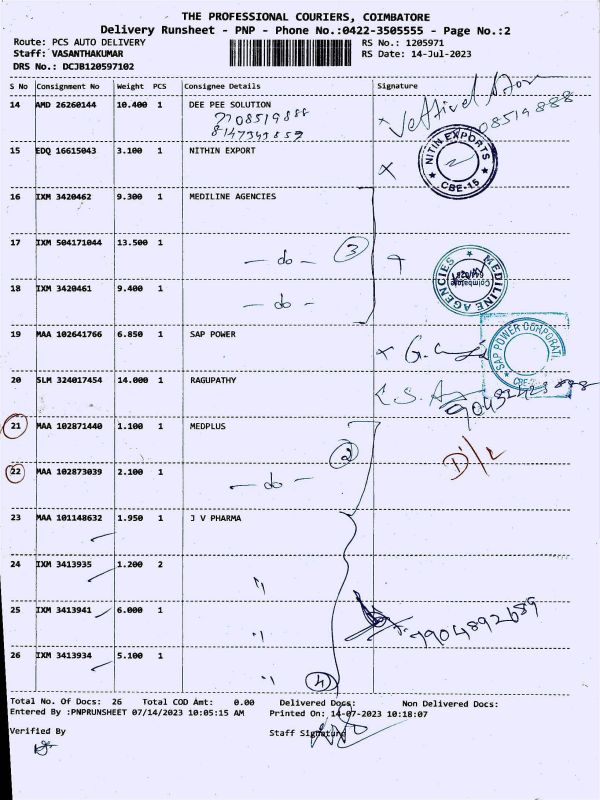 THE PROFESSIONAL COURIERS, COIMBATORE
Delivery Runsheet - PNP - Phone No.:0422-3505555 - Page No.:2
Route: PCS AUTO DELIVERY
RS No.: 1205971
Staff: VASANTHAKUMAR
RS Date: 14-Jul-2023
DRS No.: DCJB120597102
S No Consignment No Weight PCS Consignee Details Signature
14 AMD 26260144 10.400 1 DEE PEE SOLUTION
7708519888
8147343859
08519888
15 EDQ 16615043 3.100 1 NITHIN EXPORT
NITIN EXPORTS
CBE-15
16 IXM 3420462 9.300 1 MEDILINE AGENCIES
17 IXM 504171044 13.500 1
- do - 3
MEDILINE AGENCIES
Coimbatore
641028
18 IXM 3420461 9.400 1
- do -
19 MAA 102641766 6.850 1 SAP POWER
SAP POWER CORPORATI
20 SLM 324017454 14.000 1 RAGUPATHY
21 MAA 102871440 1.100 1 MEDPLUS
2
D/L
22 MAA 102873039 2.100 1
- do -
23 MAA 101148632 1.950 1 J V PHARMA
24 IXM 3413935 1.200 2
"
25 IXM 3413941 6.000 1
"
7904892689
26 IXM 3413934 5.100 1
" 4
Total No. Of Docs: 26 Total COD Amt: 0.00 Delivered Docs: Non Delivered Docs:
Entered By :PNPRUNSHEET 07/14/2023 10:05:15 AM Printed On: 14-07-2023 10:18:07
Verified By
Staff Signature